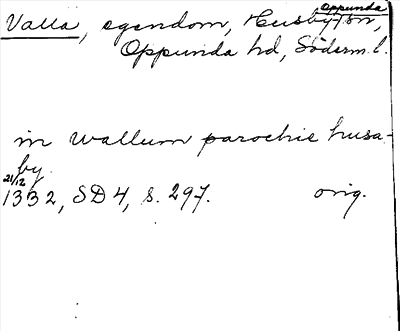 Valla, egendom, Husby Oppunda sn,
Oppunda hd, Söderm. l.
in wallum parochie husa-
by.
21/12
1332, SD 4, s. 297. orig.